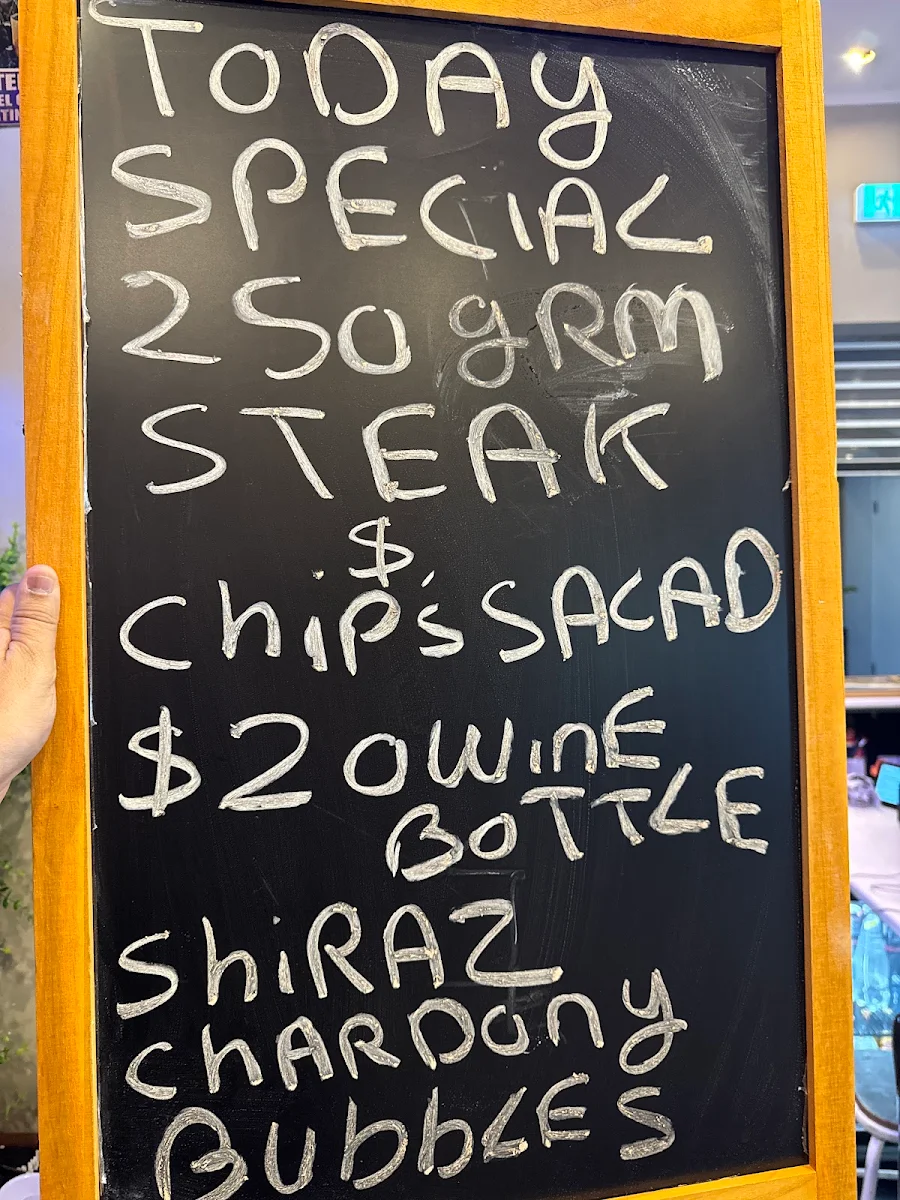 ToDAy
SPECIAL
250 gRM
STEAK
$
Chip's SALAD
$20 WinE
BoTTLE
ShiRAZ
ChARDony
BubbLES